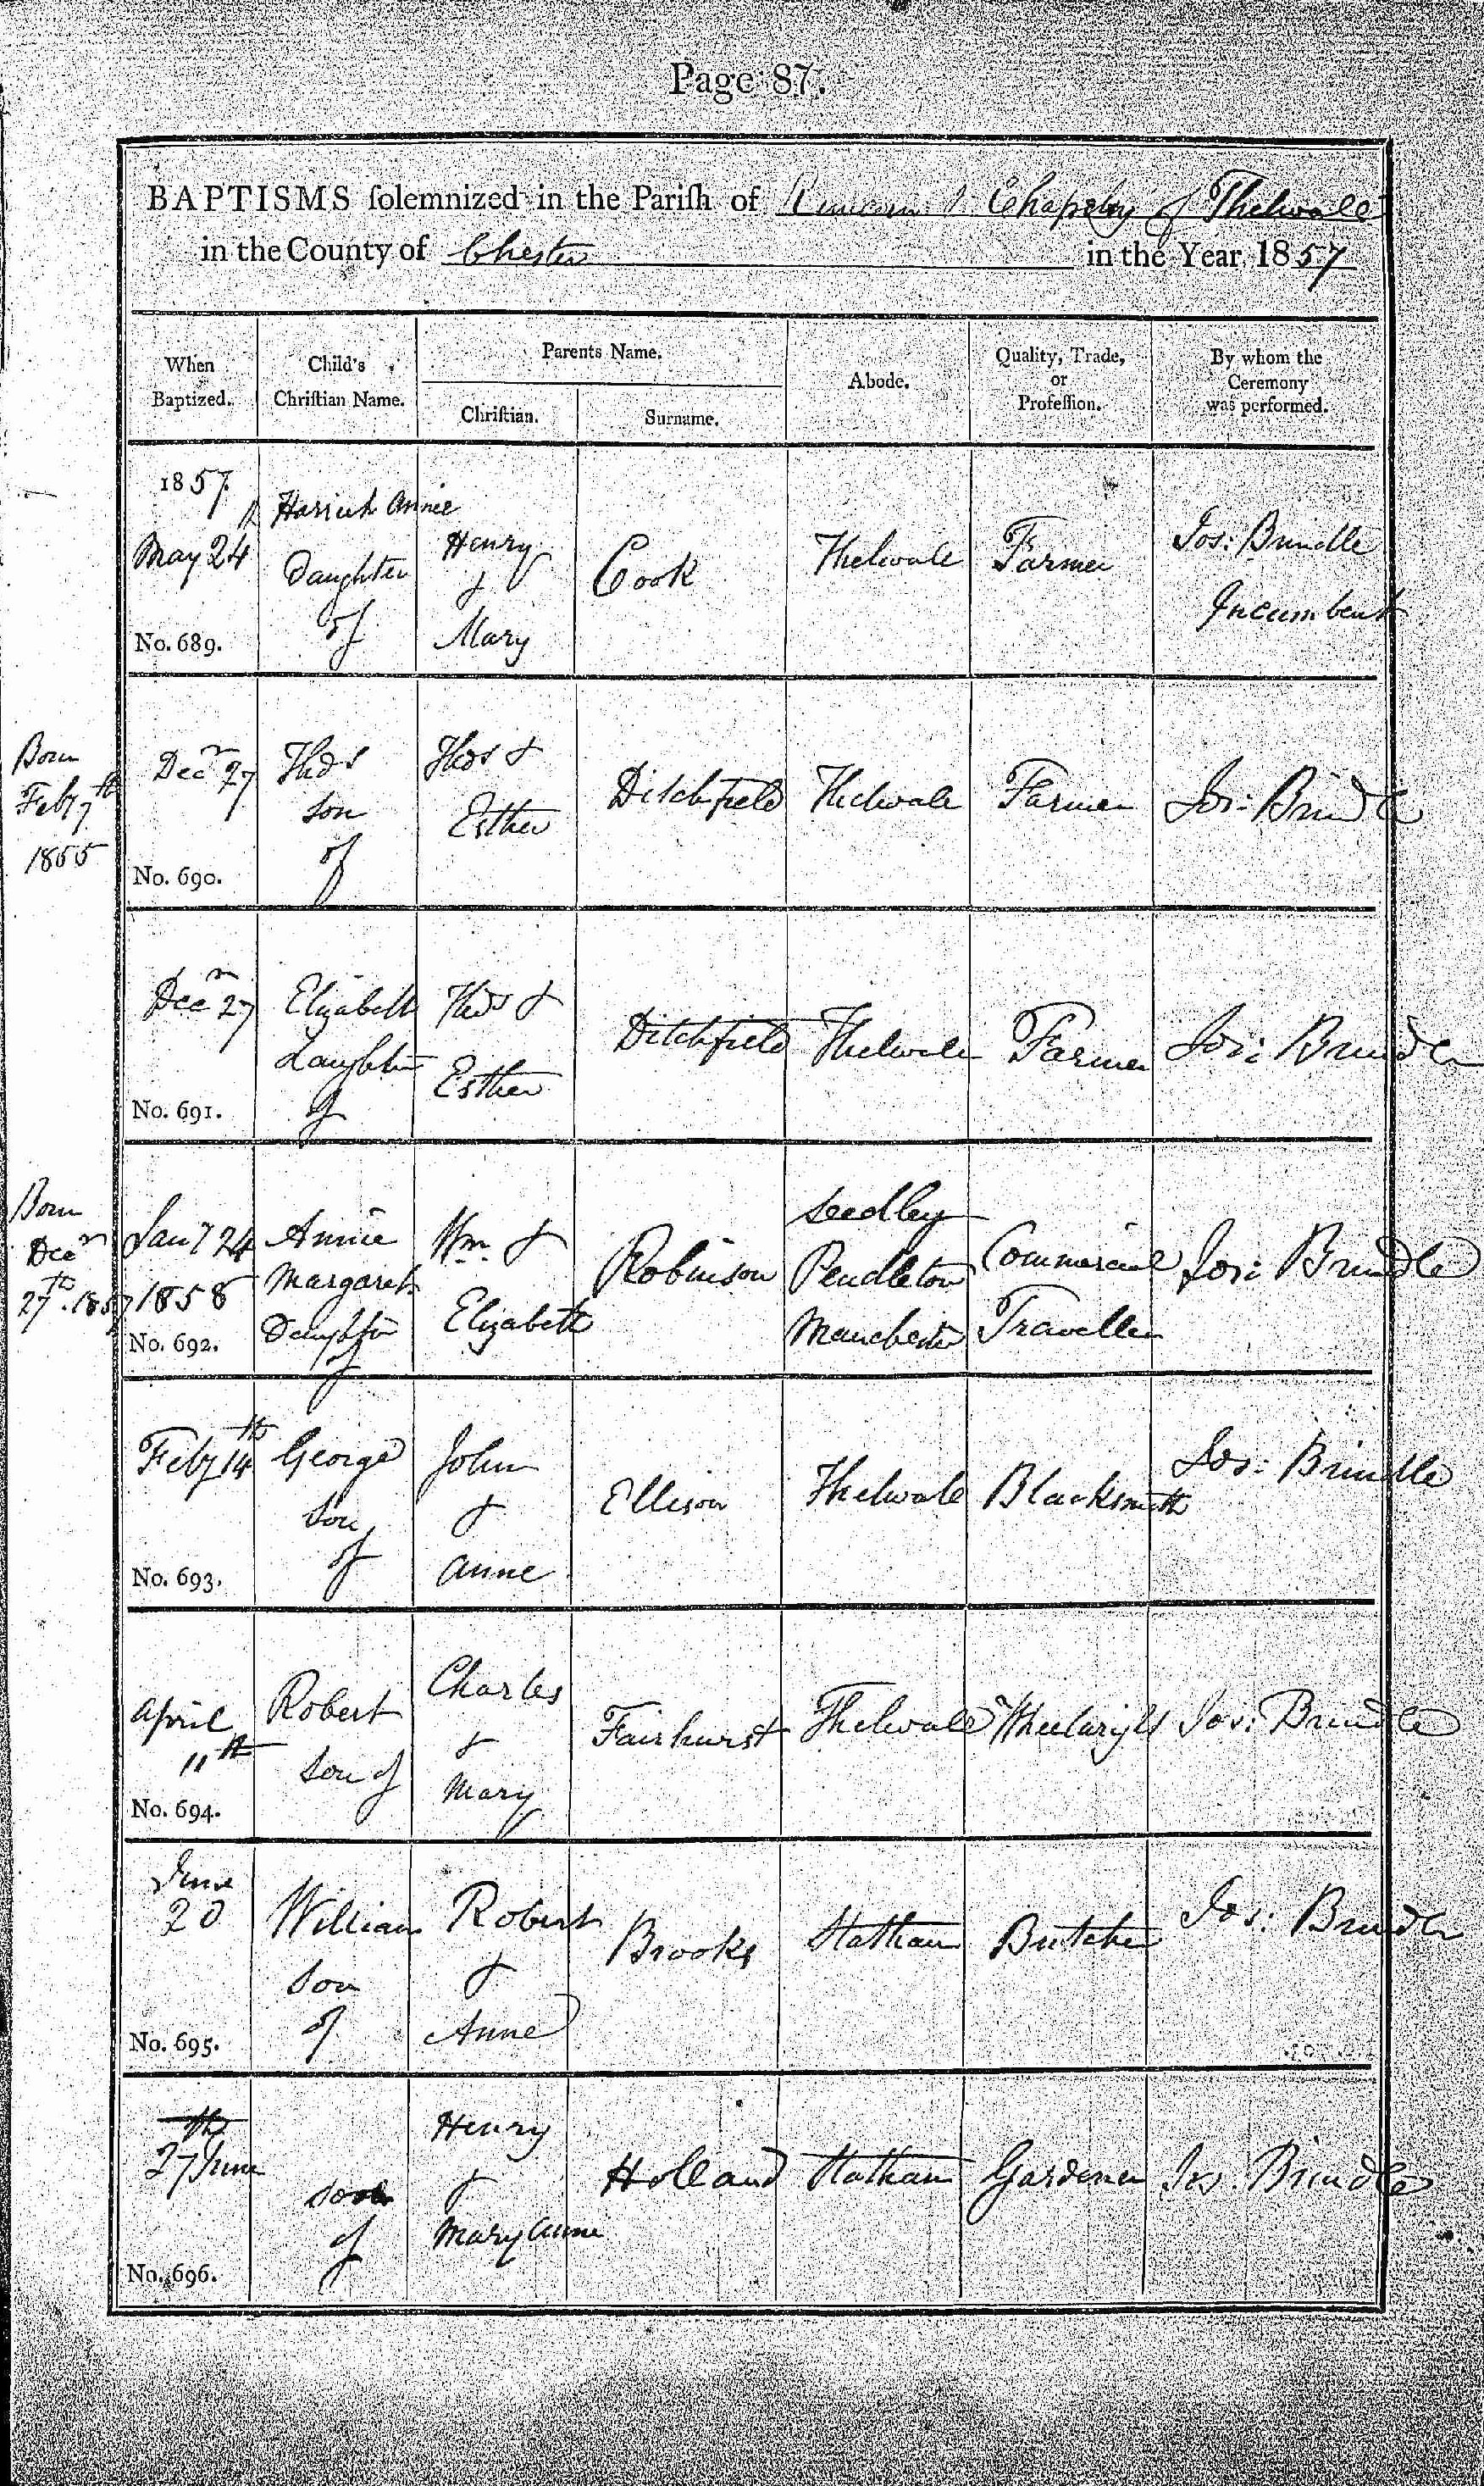 Page 87.
BAPTISMS ſolemnized in the Pariſh of Runcorn & Chapelry of Thelwall
in the County of Chester in the Year 1857
When
Baptized.
Child's
Chriſtian Name.
Parents Name.
Chriſtian.
Surname.
Abode.
Quality, Trade,
or
Profeſſion.
By whom the
Ceremony
was performed.
1857.
May 24
No. 689.
Harriet Annie
Daughter
of
Henry
&
Mary
Cook
Thelwall
Farmer
Jos: Brindle
Incumbent
Born
Feby 7th
1855
Decr 27
No. 690.
Thos
son
of
Thos &
Esther
Ditchfield
Thelwall
Farmer
Jos: Brindle
Decr 27
No. 691.
Elizabeth
Daughter
of
Thos &
Esther
Ditchfield
Thelwall
Farmer
Jos: Brindle
Born
Decr
27th. 1857
Jany 24
1858
No. 692.
Annie
Margaret
Daughter
of
Wm. &
Elizabeth
Robinson
Seedley
Pendleton
Manchester
Commercial
Traveller
Jos: Brindle
Feby 14th
No. 693.
George
Son
of
John
&
Anne
Ellison
Thelwall
Blacksmith
Jos: Brindle
April
11th
No. 694.
Robert
Son of
Charles
&
Mary
Fairhurst
Thelwall
Wheelwright
Jos: Brindle
June
20
No. 695.
William
Son
of
Robert
&
Anne
Brooks
Statham
Butcher
Jos: Brindle
27th June
No. 696.
son
of
Henry
&
Mary Anne
Holland
Statham
Gardener
Jos. Brindle